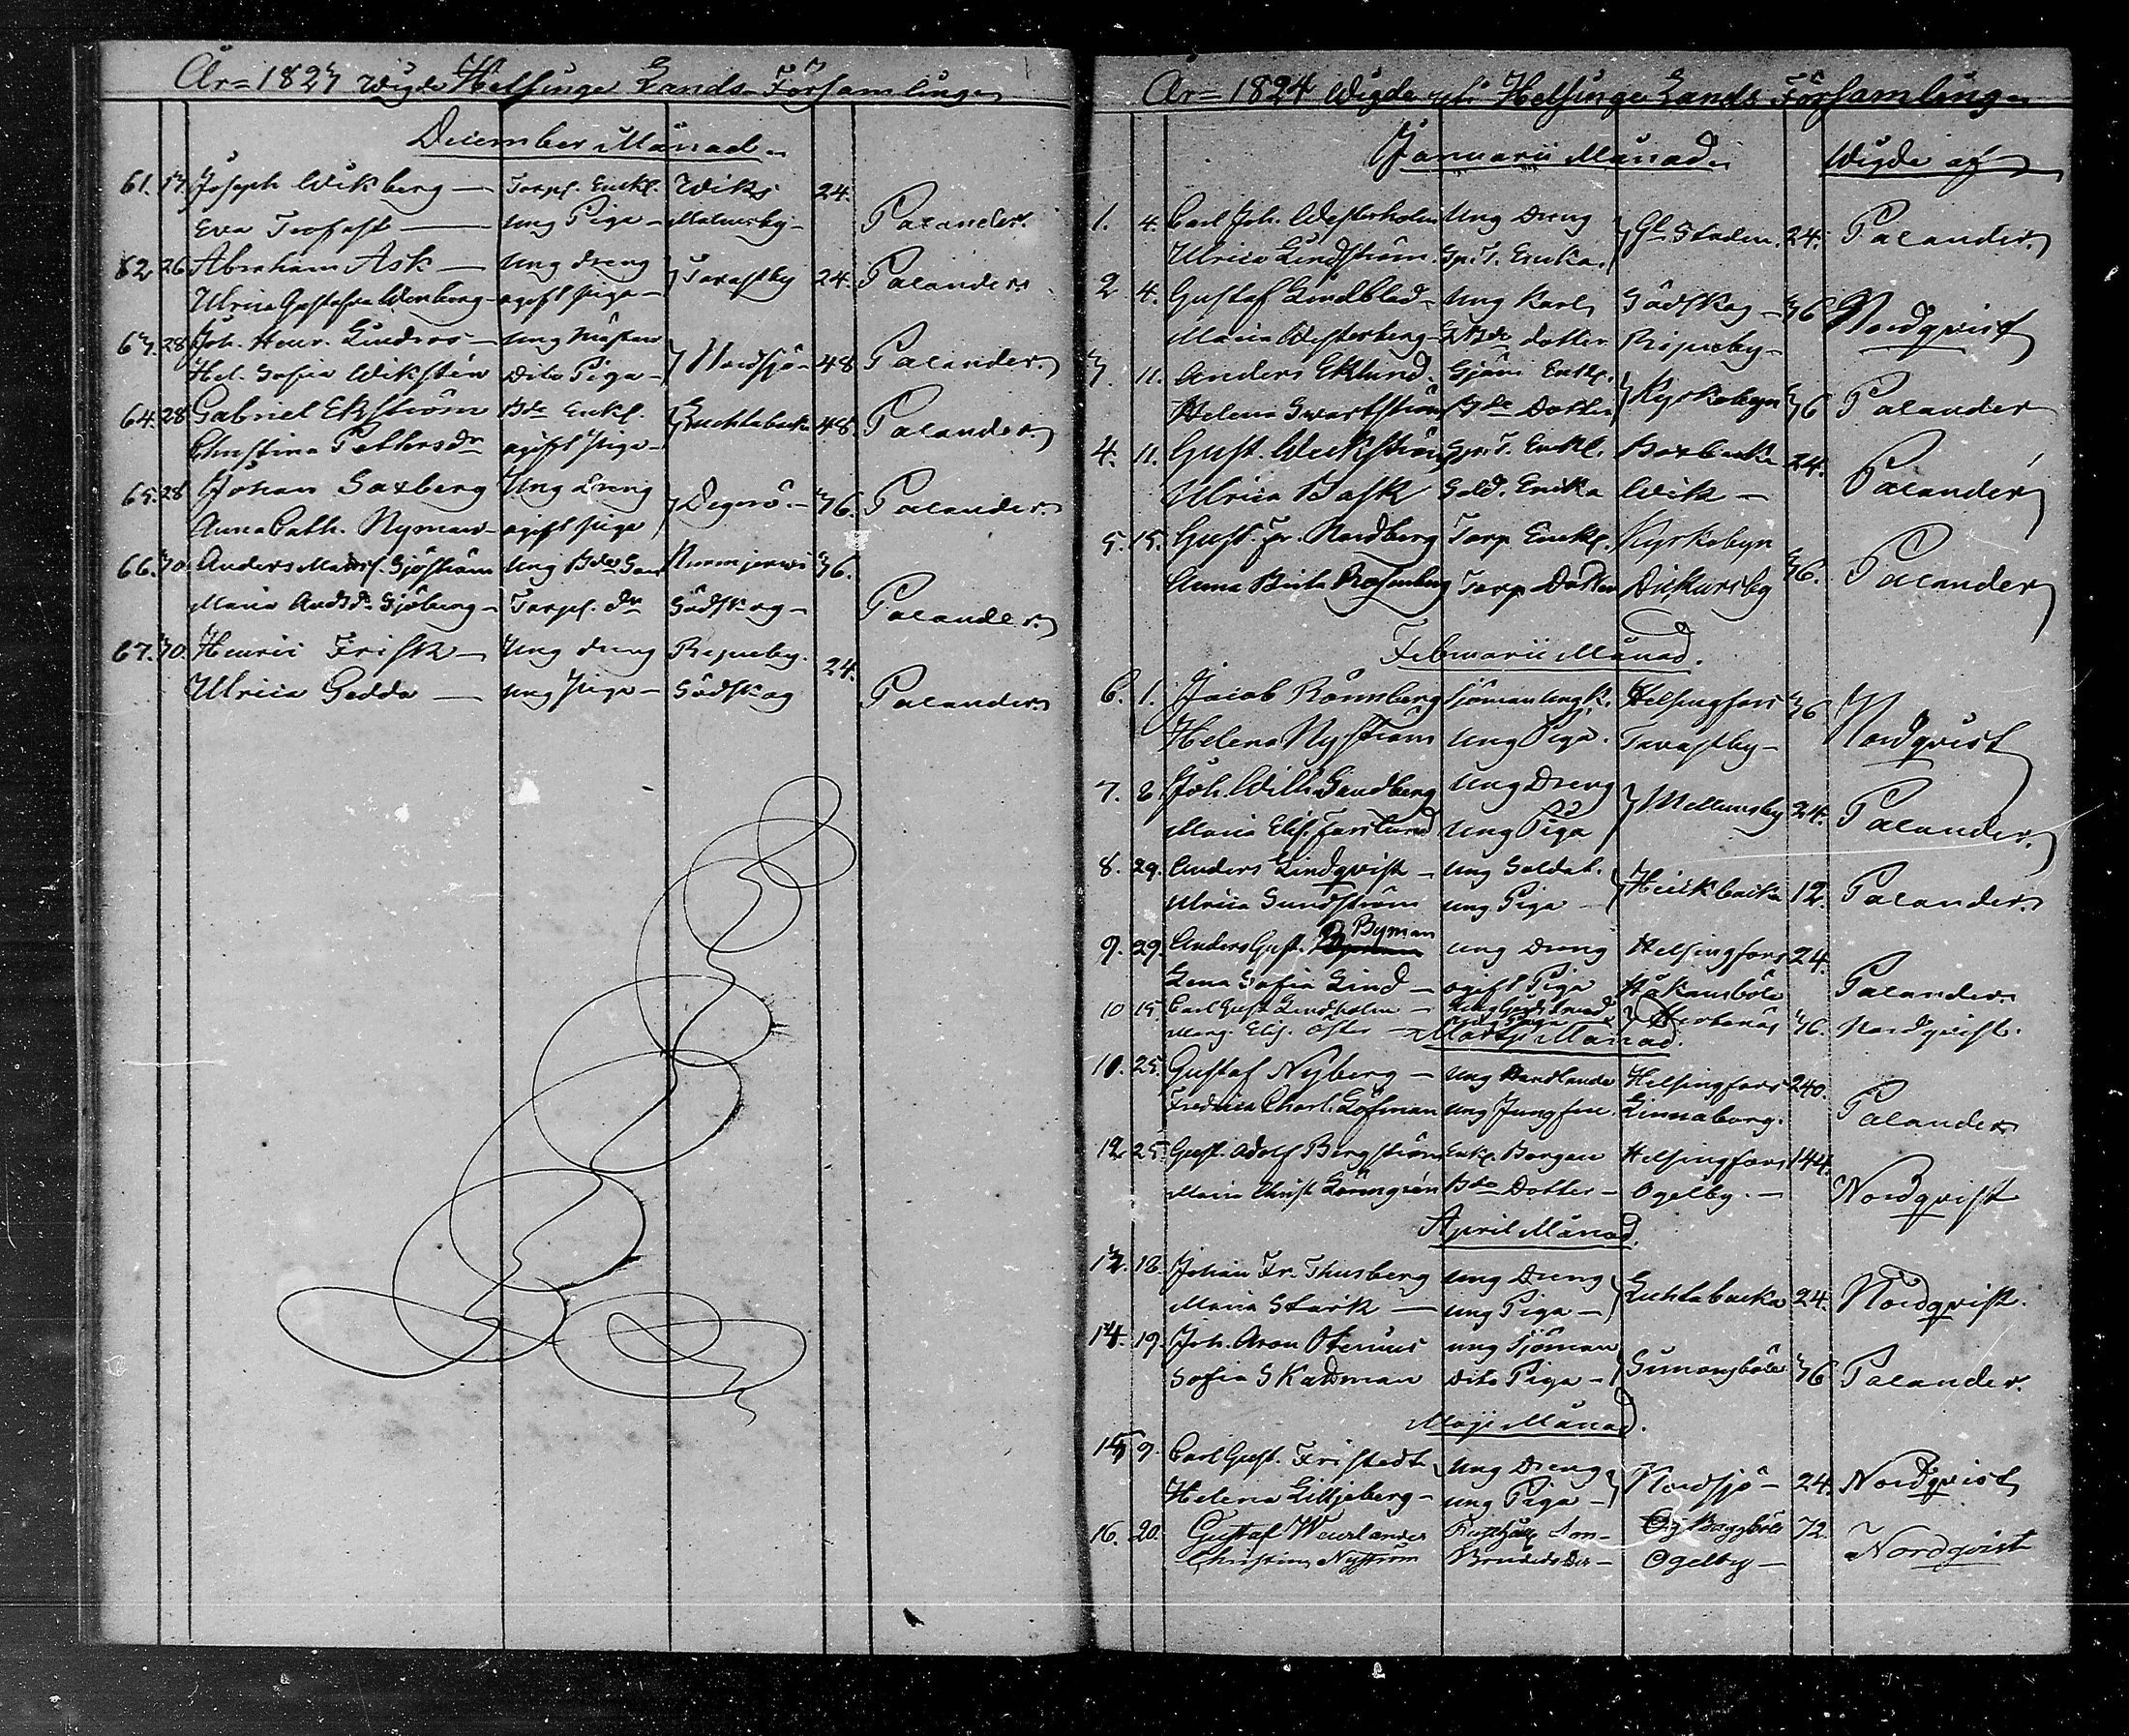 År 1823 Wigde Helsinge Lands Församling
December Månad
61. 13. Joseph Wikberg — Torp. Enkl. Wiks 24.
Eva Trofast — ung Piga — Malmsby — Palander.
62 26 Abraham Ask — ung dreng } Tavastby 24. Palander.
Ulrica Gustafva Wenberg — ogift piga —
63. 28 Joh. Henr. Lindros — ung } Nordsjö — 48 Palander.
Hel. Sofia Wikstén Dito Piga —
64. 28 Gabriel Ekström Bde Enkl. } Luchtabacka 48. Palander.
Christina Pettersdr ogift piga —
65. 28 Johan Saxberg Ung Dreng } Degerö. — 36. Palander.
Anna Cath. Nyman — ogift piga
66. 30. Anders Matts. Sjöström Ung Bde Son Nurmijervi 36.
Maria Andsdr Sjöberg — Torp. dr Södskog — Palander.
67. 30. Henric Frisk — Ung dreng Ripuby. 24.
Ulrica Gedda — ung piga — Södskog Palander
År 1824 Wigde uti Helsinge Lands Församling
Januarii Månad. Wigde af
1. 4. Carl Joh. Westerholm Ung Dreng } Gl. Staden. 24. Palander
Ulrica Lindström. Enka.
2. 4. Gustaf Lindblad — Ung Karl Södskog — 36 Nordqvist
Maria Westerberg — Bde dotter Ripuby —
3. 11. Anders Eklund. Enkl. } Kyrkobyn 36 Palander
Helena Swartström Bde Dotter
4. 11. Gust. Weckström Enkl. Boxbacka 24. Palander
Ulrica Bask Sold. Enka Wik —
5. 15. Gust. Fr. Nordberg Torp. Enkl. Kyrkobyn 36. Palander
Anna Brita Rosenberg Torp Dotter Dickursby
Februarii Månad.
6. 1. Jacob Rönnberg Sjöman ung K. Helsingfors 36 Nordqvist
Helena Nyström Ung Piga. Tavastby —
7. 8 Joh. Wilh. Sandberg Ung Dreng } Mellungsby 24. Palander.
Maria Elis. Forslund Ung Piga
8. 29. Anders Lindqvist — ung Soldat. } backa 12. Palander.
Ulrica Sundström ung Piga —
9. 29. Anders Gust. Byman ung Dreng Helsingfors 24.
Lena Sofia Lind — ogift Piga Håkansböle Palander.
10 15. Carl Gust Lindholm — } Herbenäs 36. Nordqvist.
Marg. Elis. Öster —
Martji Månad.
11. 25. Gustaf Nyberg — ung Handlande Helsingfors 240.
Fredrica Charl. Löfman ung Jungfru. Linnaborg. Palander
12 25 Gust. Adolf Bergström Enkl. Borgare Helsingfors 144.
Maria Christ. Bde Dotter — Ogelby. — Nordqvist
April Månad.
13. 18. Johan Fr. Thusberg ung Dreng } Luchtabacka 24. Nordqvist.
Maria Stark — ung Piga —
14. 19. Joh. Aron Stenius ung Sjöman } Simonsböle 36 Palander.
Sofia Skadman Dito Piga —
Maji Månad.
15 9. Carl Gust. Fristedt ung Dreng } Nordsjö — 24. Nordqvist
Helena Lilljeberg — ung Piga —
16. 20. Gustaf Weurlander Son — Baggböle 72. Nordqvist
Christina Nyström Ogelby —